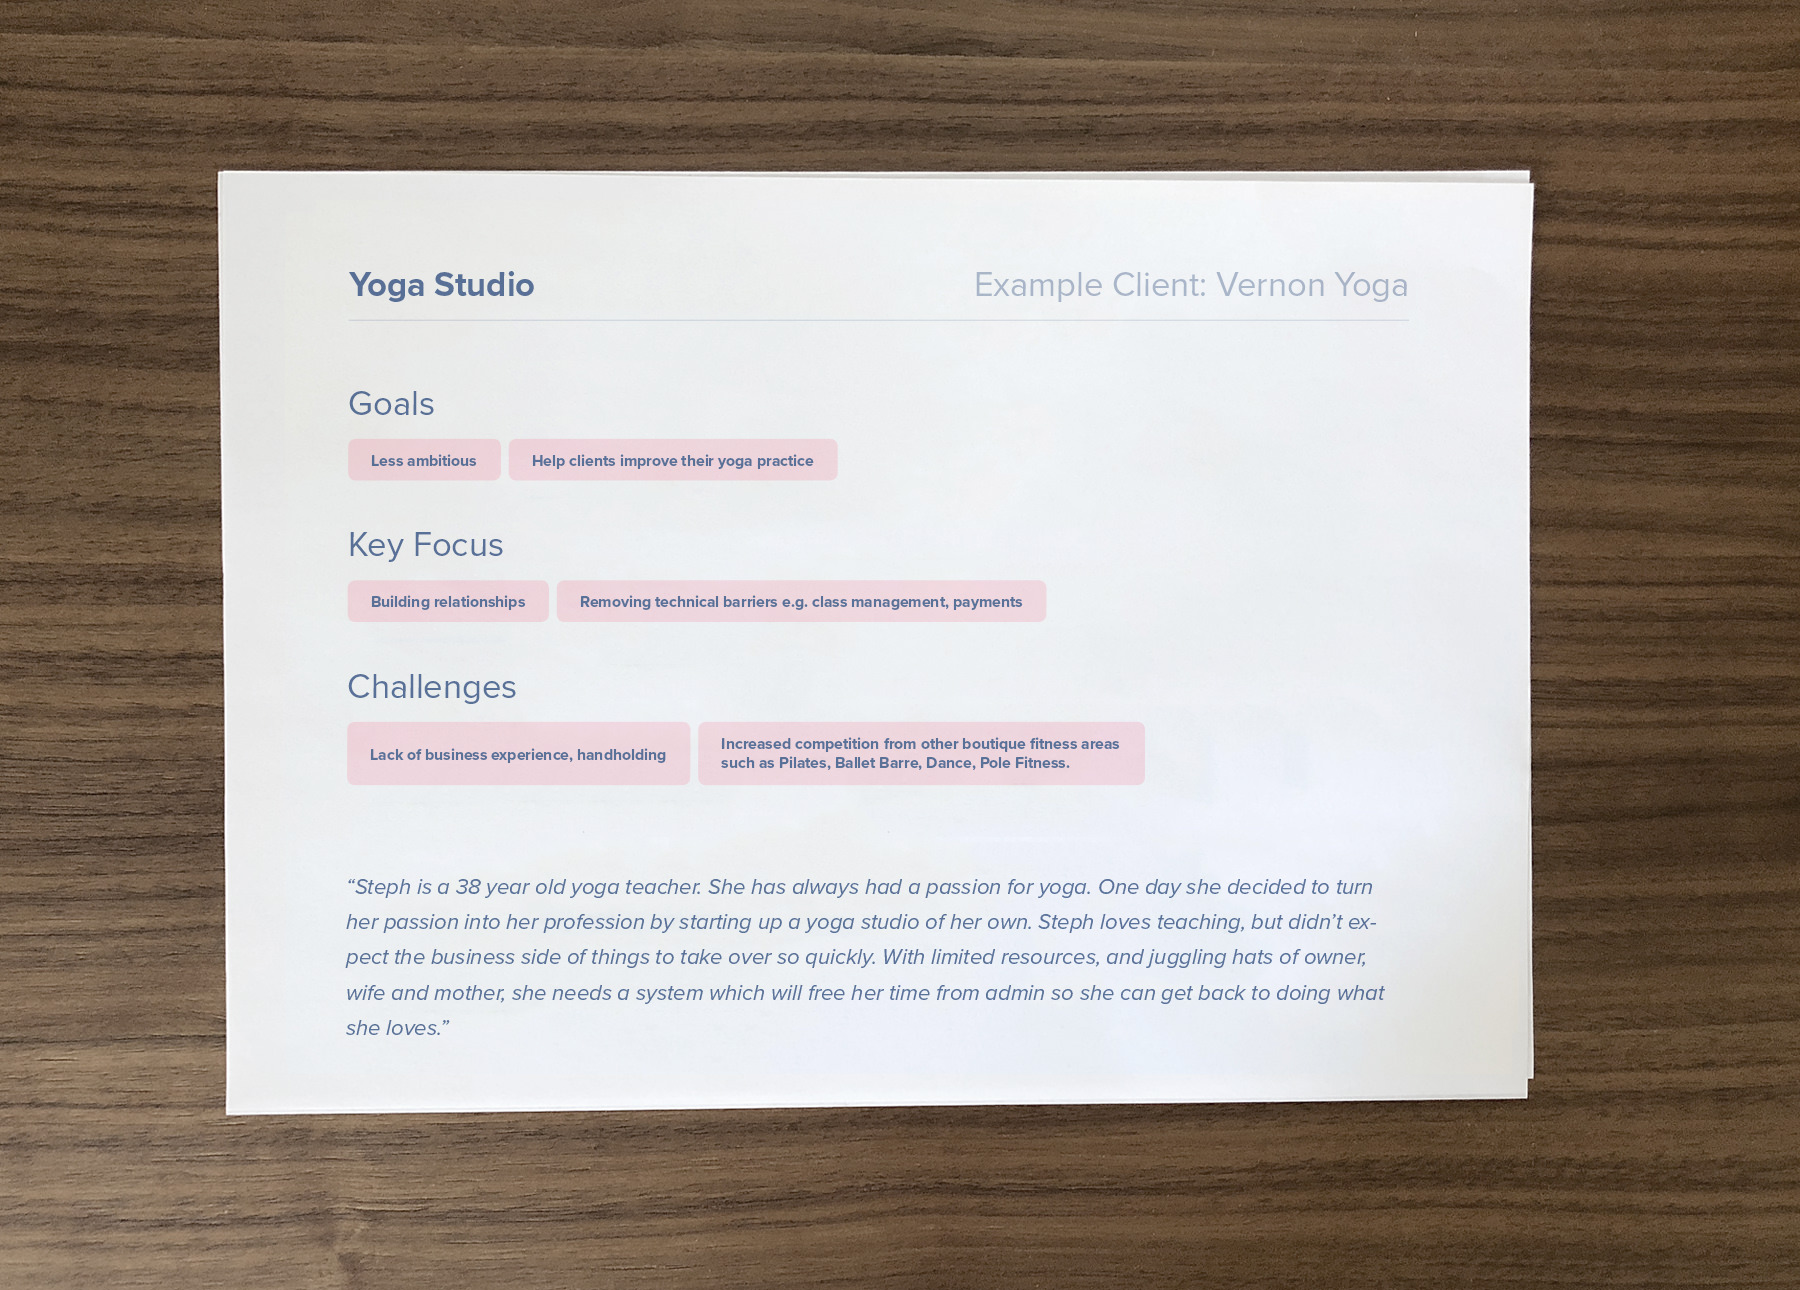 Yoga Studio
Example Client: Vernon Yoga
Goals
Less ambitious
Help clients improve their yoga practice
Key Focus
Building relationships
Removing technical barriers e.g. class management, payments
Challenges
Lack of business experience, handholding
Increased competition from other boutique fitness areas
such as Pilates, Ballet Barre, Dance, Pole Fitness.
“Steph is a 38 year old yoga teacher. She has always had a passion for yoga. One day she decided to turn
her passion into her profession by starting up a yoga studio of her own. Steph loves teaching, but didn’t ex-
pect the business side of things to take over so quickly. With limited resources, and juggling hats of owner,
wife and mother, she needs a system which will free her time from admin so she can get back to doing what
she loves.”